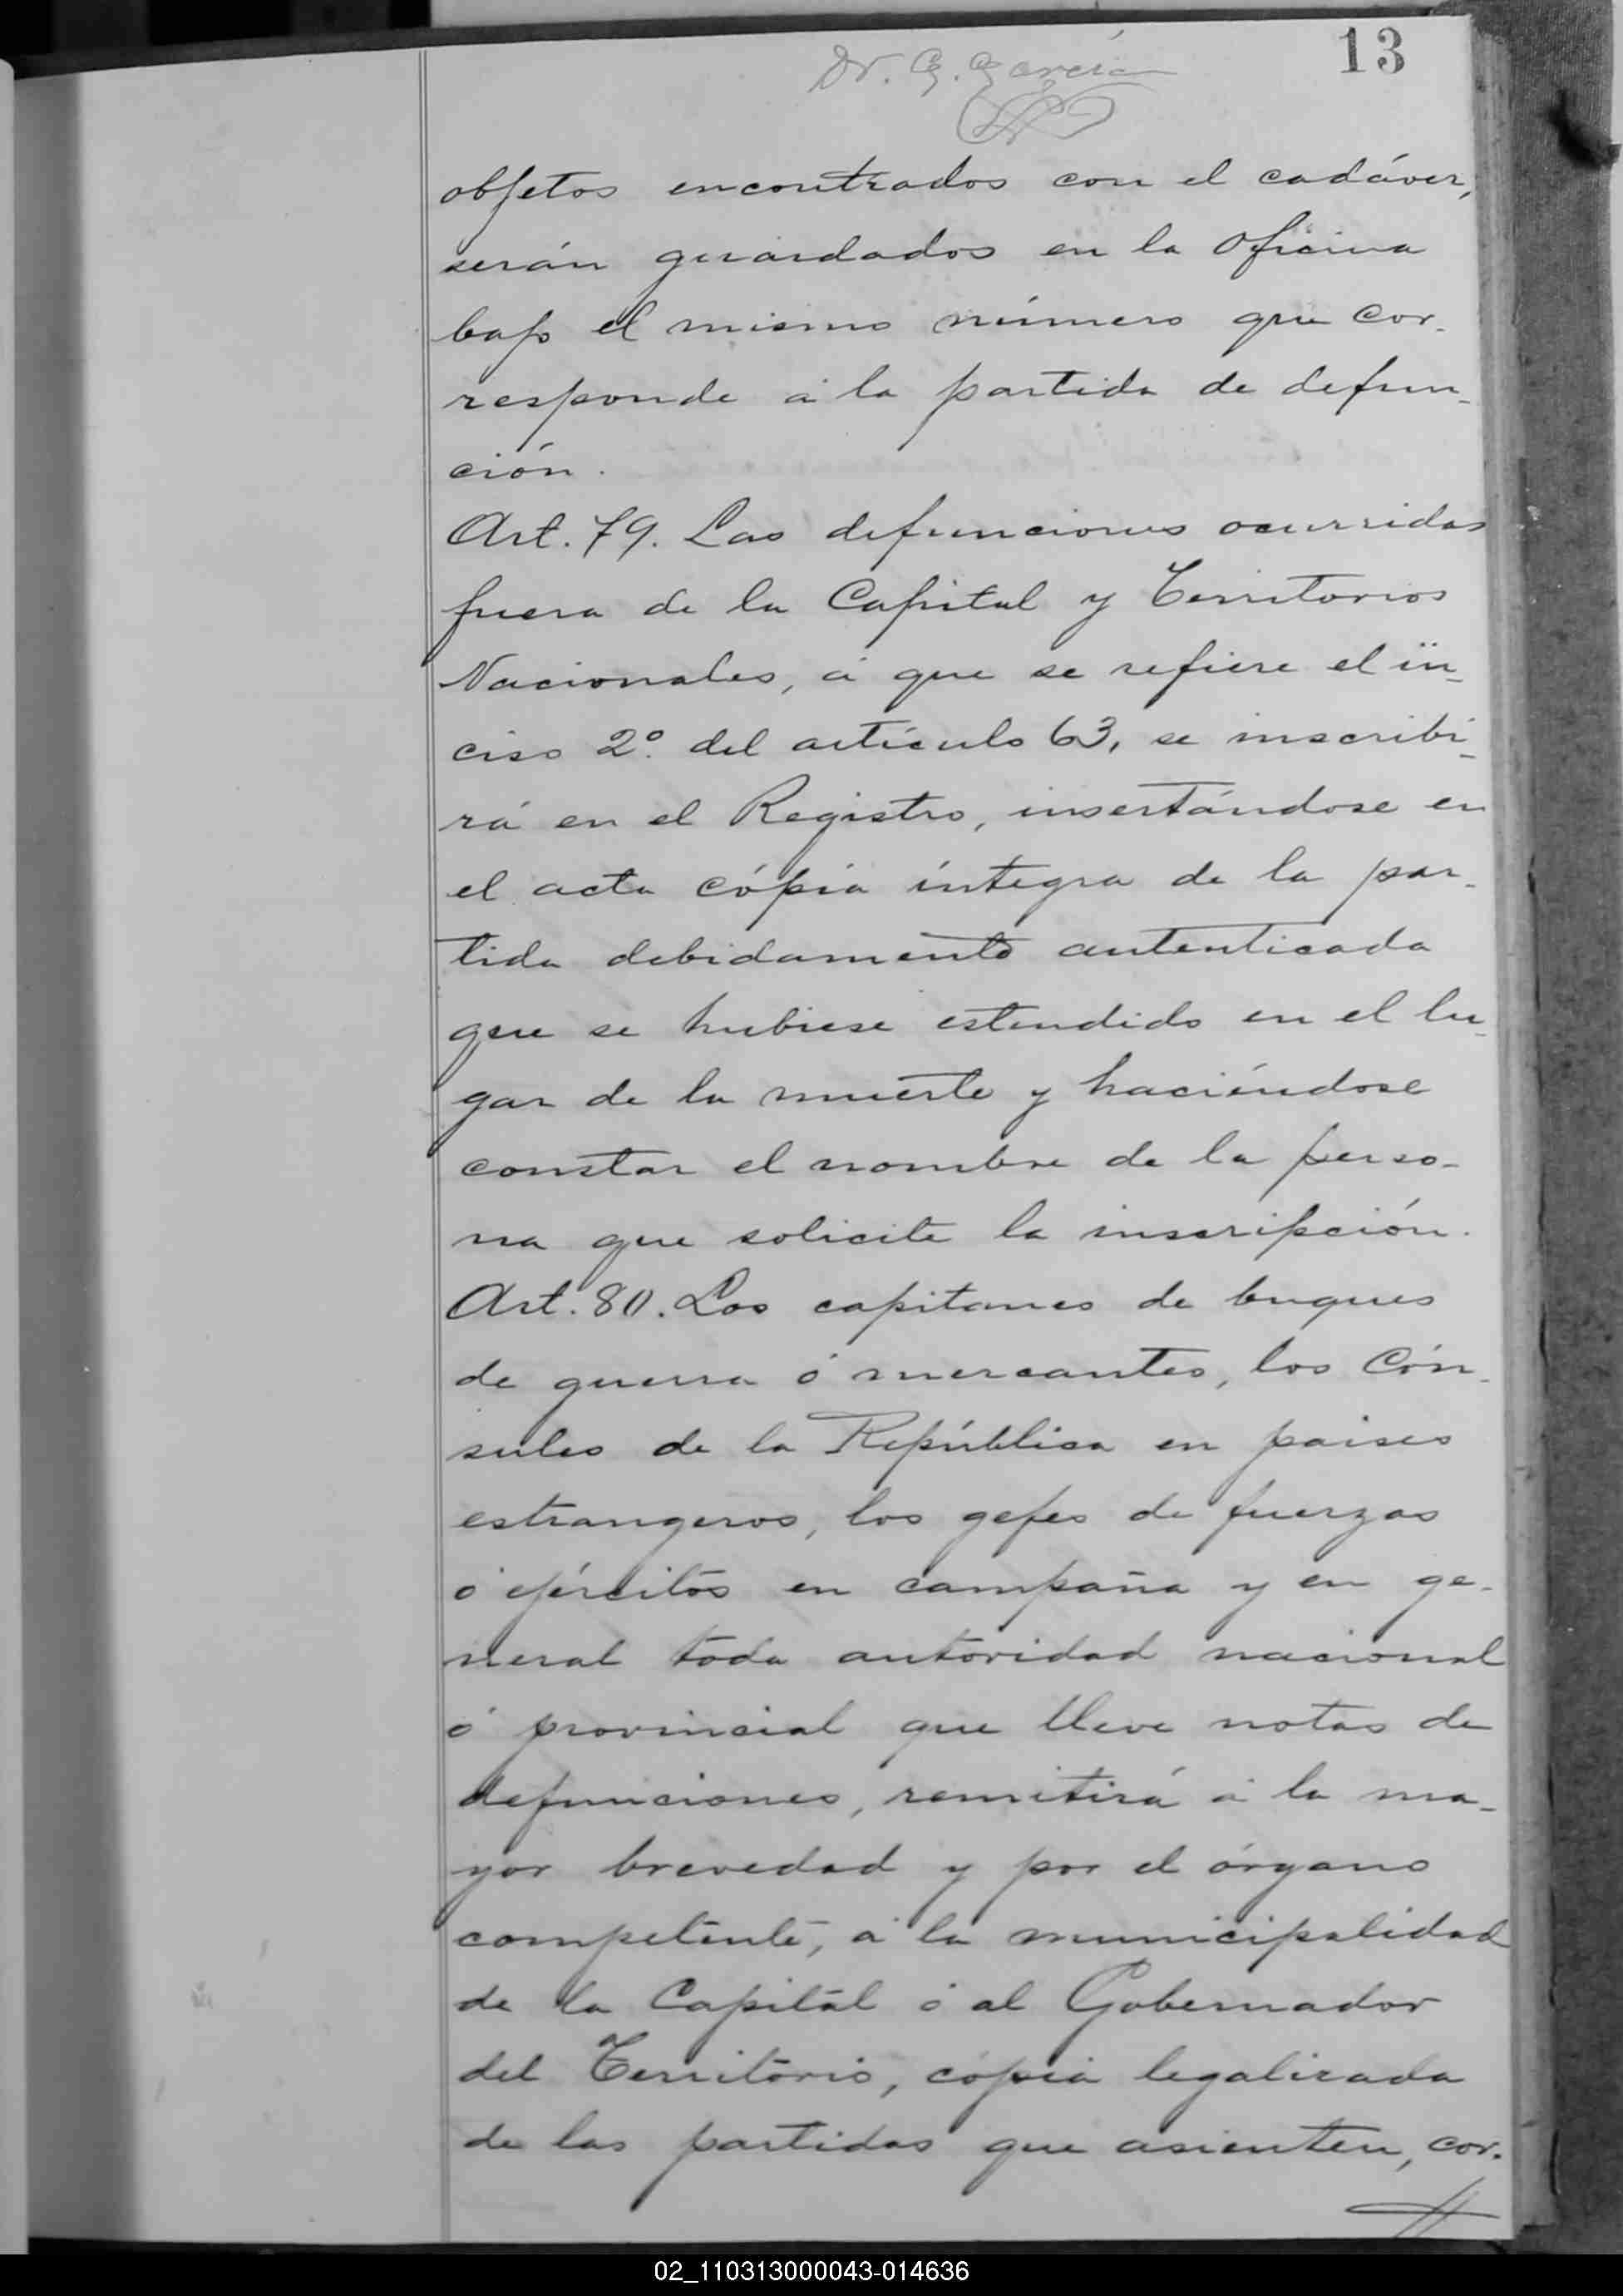 13
Dr. G. García
objetos encontrados con el cadáver,
serán guardados en la Oficina
bajo el mismo número que cor-
responde á la partida de defun-
ción.
Art. 79. Las defunciones ocurridas
fuera de la Capital y Territorios
Nacionales, á que se refiere el in-
ciso 2º del artículo 63, se inscribi-
rá en el Registro, insertándose en
el acta cópia íntegra de la par-
tida debidamente autenticada
que se hubiese estendido en el lu-
gar de la muerte y haciéndose
constar el nombre de la perso-
na que solicite la inscripción.
Art. 80. Los capitanes de buques
de guerra ó mercantes, los Cón-
sules de la República en paises
estrangeros, los gefes de fuerzas
ó ejércitos en campaña y en ge-
neral toda autoridad nacional
ó provincial que lleve notas de
defunciones, remitirá á la ma-
yor brevedad y por el órgano
competente, á la municipalidad
de la Capital ó al Gobernador
del Territorio, cópia legalizada
de las partidas que asienten, cor-
02_110313000043-014636